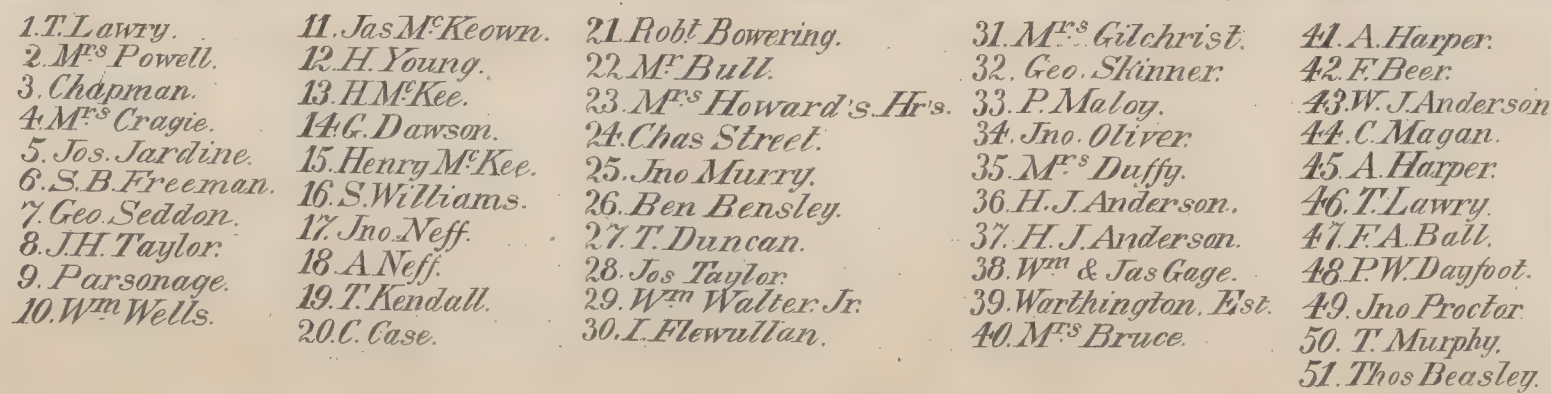 1. T. Lawry.
2. Mrs Powell.
3. Chapman.
4. Mrs Cragie.
5. Jos. Jardine.
6. S. B. Freeman.
7. Geo. Seddon.
8. J. H. Taylor.
9. Parsonage.
10. Wm Wells.
11. Jas McKeown.
12. H. Young.
13. H McKee.
14. G. Dawson.
15. Henry McKee.
16. S. Williams.
17. Jno. Neff.
18. A Neff.
19. T. Kendall.
20. C. Case.
21. Robt Bowering.
22. Mr Bull.
23. Mrs Howard's Hr's.
24. Chas Street.
25. Jno Murry.
26. Ben Bensley.
27. T. Duncan.
28. Jos Taylor.
29. Wm Walter. Jr.
30. I. Flewullan.
31. Mrs Gilchrist.
32. Geo. Skinner.
33. P. Maloy.
34. Jno. Oliver.
35. Mrs Duffy.
36. H. J. Anderson.
37. H. J. Anderson.
38. Wm & Jas Gage.
39. Warthington. Est.
40. Mrs Bruce.
41. A. Harper.
42. F. Beer.
43. W. J. Anderson
44. C. Magan.
45. A. Harper.
46. T. Lawry.
47. F. A. Ball.
48. P. W. Dayfoot.
49. Jno Proctor.
50. T. Murphy.
51. Thos Beasley.